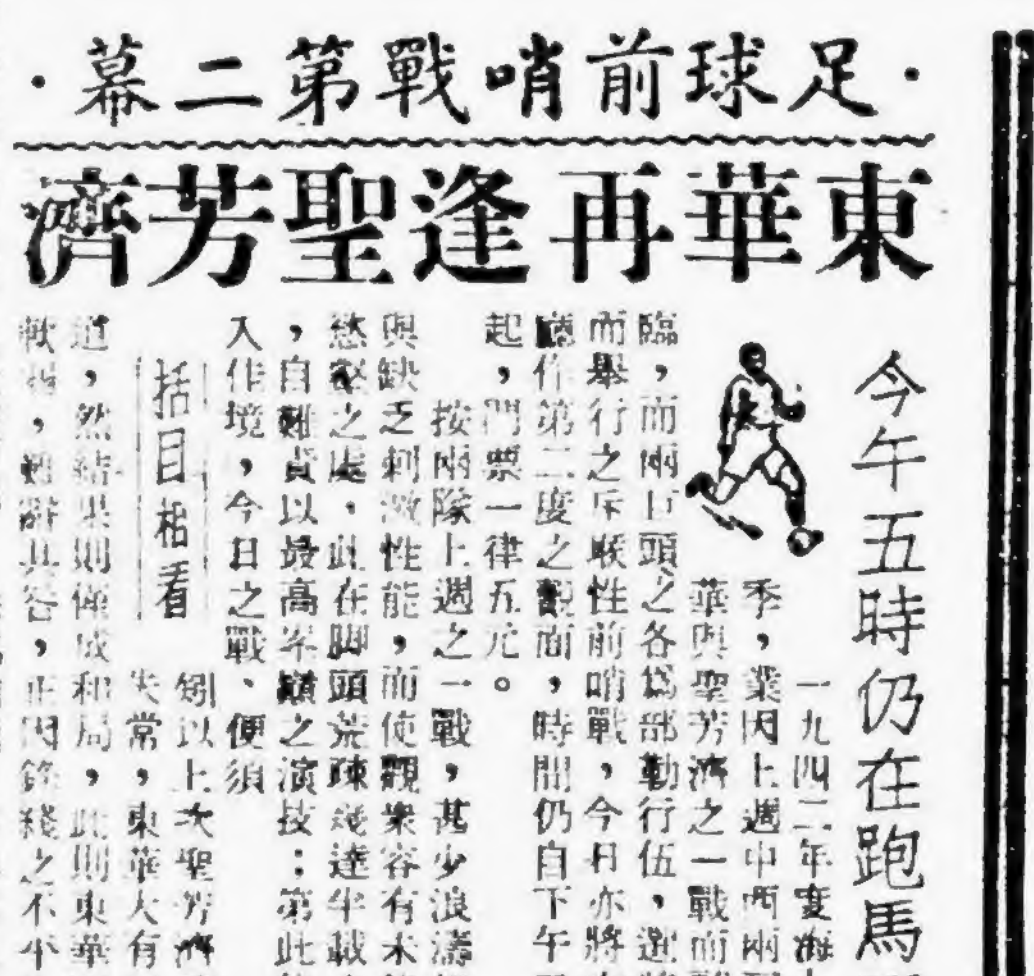 ·足球前哨戰第二幕·
東華再逢聖芳濟
今午五時仍在跑馬
一九四二年度海
季，業因上週中西兩
華與聖芳濟之一戰而
臨，而兩巨頭之各爲部勤行伍，選
而舉行之斥堠性前哨戰，今日亦將
應作第二度之覿面，時間仍自下午
起，門票一律五元。
按兩隊上週之一戰，甚少浪濤
與缺乏刺激性能，而使觀衆容有未
慾壑之處，此在脚頭荒疎幾達半載
，自難責以最高峯巔之演技；第此
入佳境，今日之戰、便須
括目相看
矧以上次聖芳濟
失常，東華大有
道，然結果則僅成和局，此則東華
，難辭其咎，正因鋒綫之不